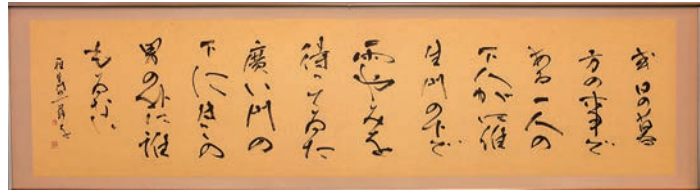 或日の暮
方の事で
ある一人の
下人が羅
生門の下で
雨やみを
待つてゐた
廣い門の
下にはこの
男の外に誰
もゐない